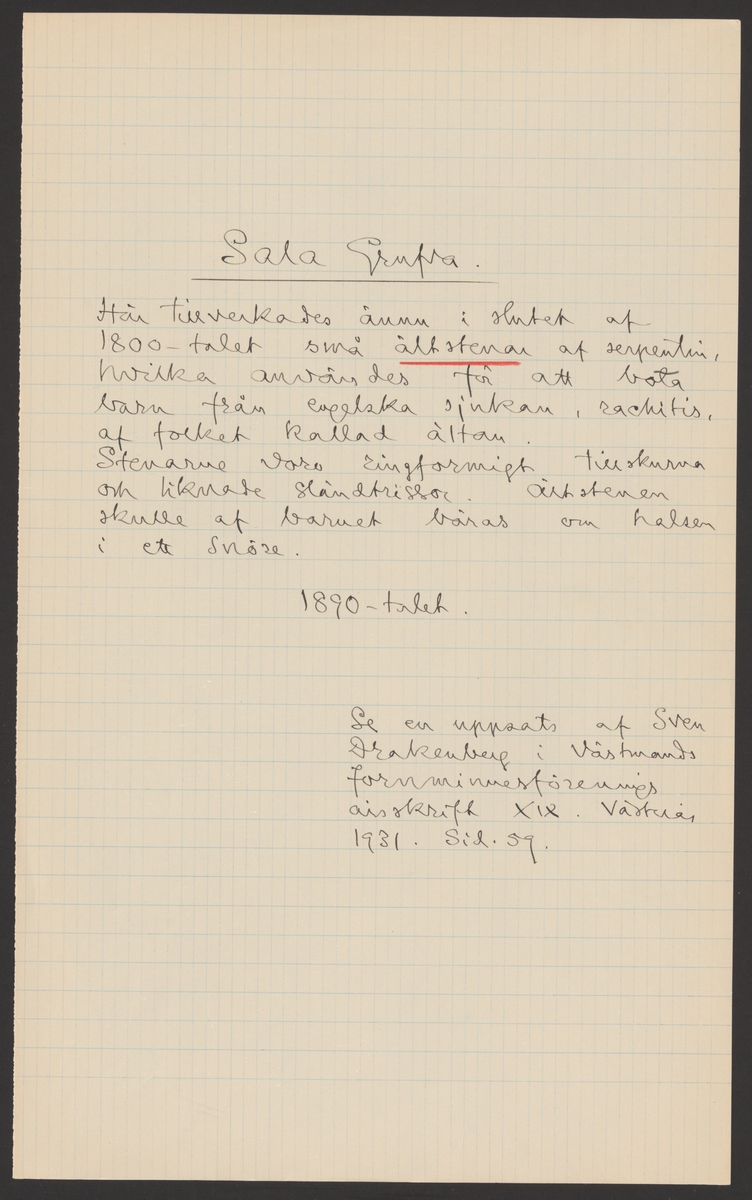 Sala Grufva.
Här tillverkades ännu i slutet af
1800-talet små ältstenar af serpentin,
hvilka användes för att bota
barn från engelska sjukan, rachitis,
af folket kallad ältan.
Stenarne voro ringformigt tillskurna
och liknade sländtrissor. Ältstenen
skulle af barnet bäras om halsen
i ett snöre.
1890-talet.
Se en uppsats af Sven
Drakenberg i Västmanlds
fornminnesförenings
årsskrift XIX. Västerås,
1931. Sid. 59.